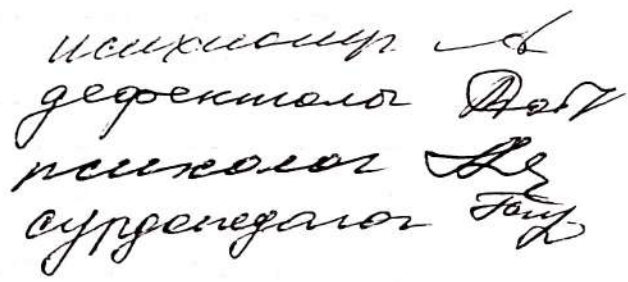 психиатр
дефектолог
психолог
сурдопедагог